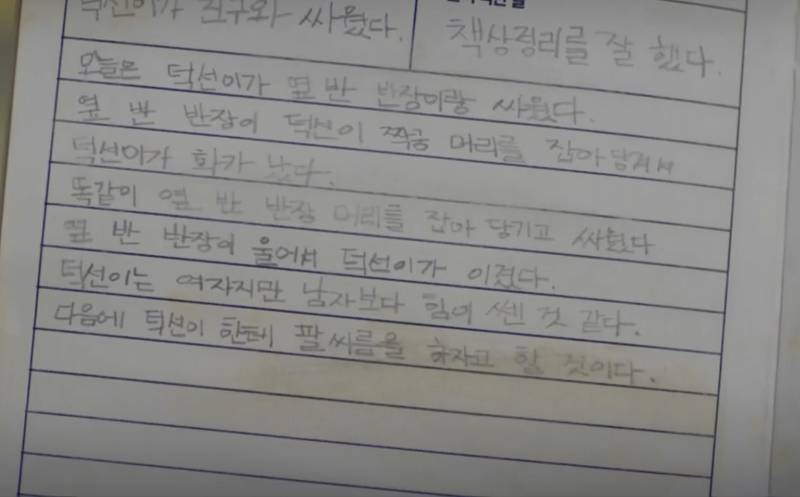 덕선이가 친구와 싸웠다.
책상정리를 잘 했다.
오늘은 덕선이가 옆 반 반장이랑 싸웠다.
옆 반 반장이 덕선이 짝궁 머리를 잡아 당겨서
덕선이가 화가 났다.
똑같이 옆 반 반장 머리를 잡아 당기고 싸웠다
옆 반 반장이 울어서 덕선이가 이겼다.
덕선이는 여자지만 남자보다 힘이 쎈 것 같다.
다음에 덕선이 한테 팔씨름을 하자고 할 것이다.